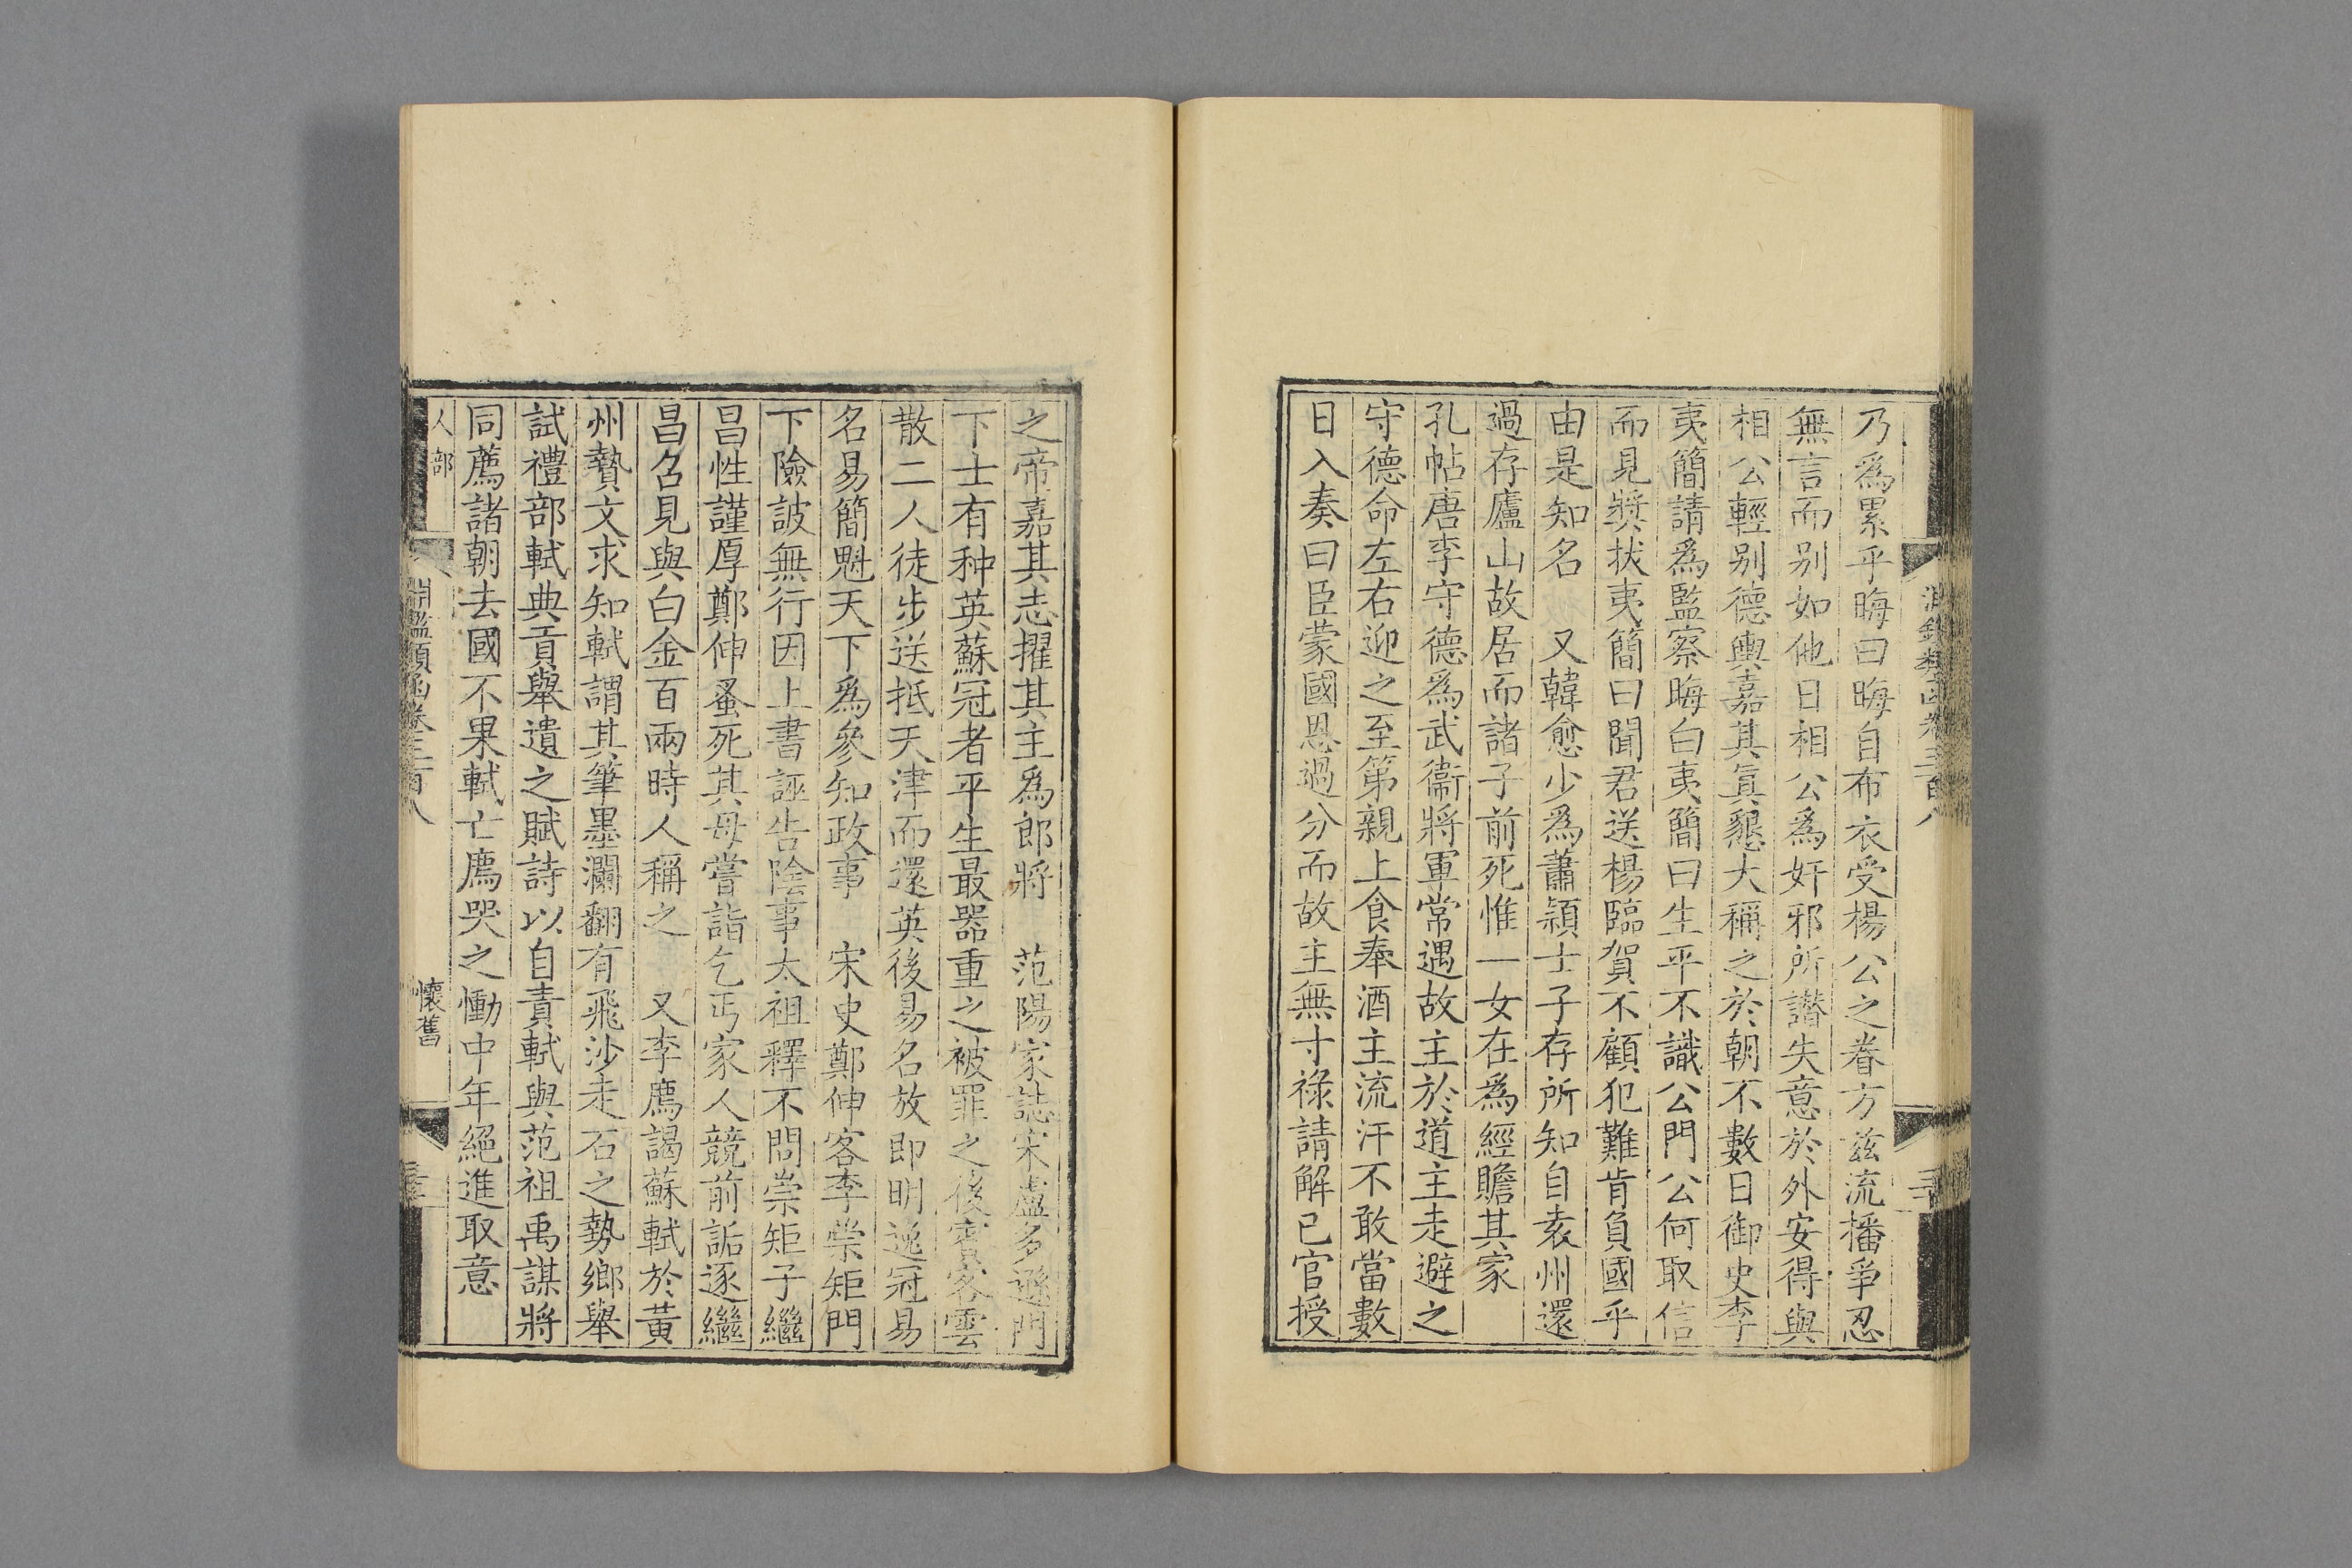 乃爲累乎晦曰晦自布衣受楊公之眷方兹流播爭忍
無言而别如他日相公爲奸邪所譖失意於外安得與
相公輕别德輿嘉其眞懇大稱之於朝不數日御史李
夷簡請爲監察晦白夷簡曰生平不識公門公何取信
而見奬拔夷簡曰聞君送楊臨賀不顧犯難肯負國乎
由是知名 又韓愈少爲蕭穎士子存所知自袁州還
過存廬山故居而諸子前死惟一女在爲經贍其家
孔帖唐李守德爲武衞將軍常遇故主於道主走避之
守德命左右迎之至第親上食奉酒主流汗不敢當數
日入奏曰臣蒙國恩過分而故主無寸祿請解已官授
之帝嘉其志擢其主爲郎將 范陽家誌宋盧多遜門
下士有种英蘇冠者平生最器重之被罪之後賓客雲
散二人徒步送抵天津而還英後易名放即明逸冠易
名易簡魁天下爲參知政事 宋史鄭伸客李崇矩門
下險詖無行因上書誣告陰事太祖釋不問崇矩子繼
昌性謹厚鄭伸蚤死其母嘗詣乞丐家人競前詬逐繼
昌召見與白金百兩時人稱之 又李廌謁蘇軾於黃
州贄文求知軾謂其筆墨瀾翻有飛沙走石之勢鄉舉
試禮部軾典貢舉遺之賦詩以自責軾與范祖禹謀將
同薦諸朝去國不果軾亡廌哭之慟中年絕進取意
人部 淵鑑類函卷三百八 懷舊